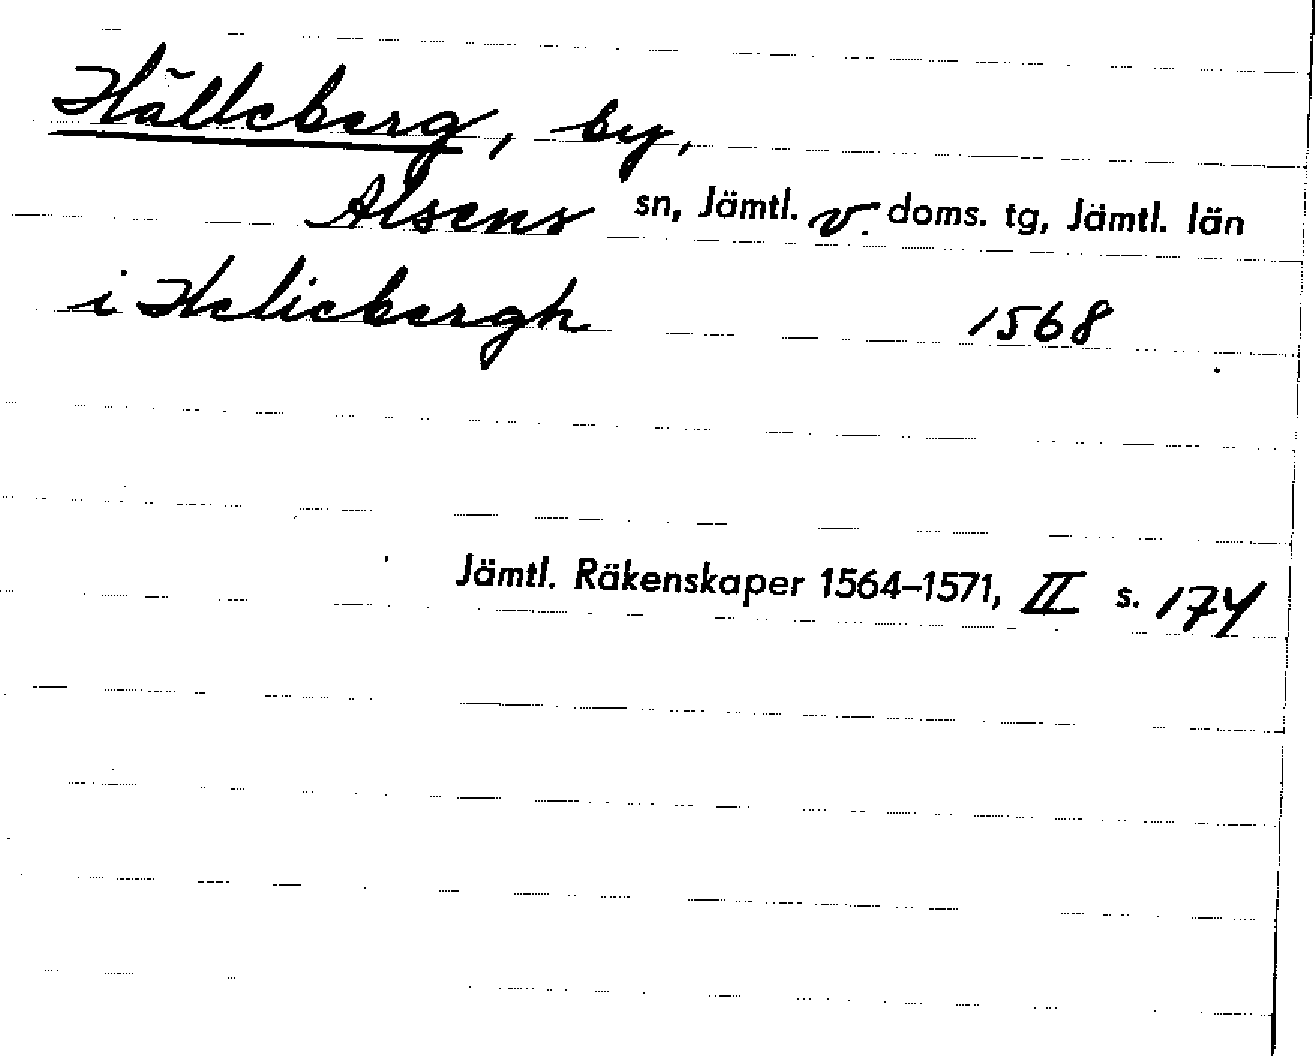 Hälleberg, by,
Alsens sn, Jämtl. v. doms. tg, Jämtl. län
i Heliebergh 1568
Jämtl. Räkenskaper 1564–1571, II s. 174